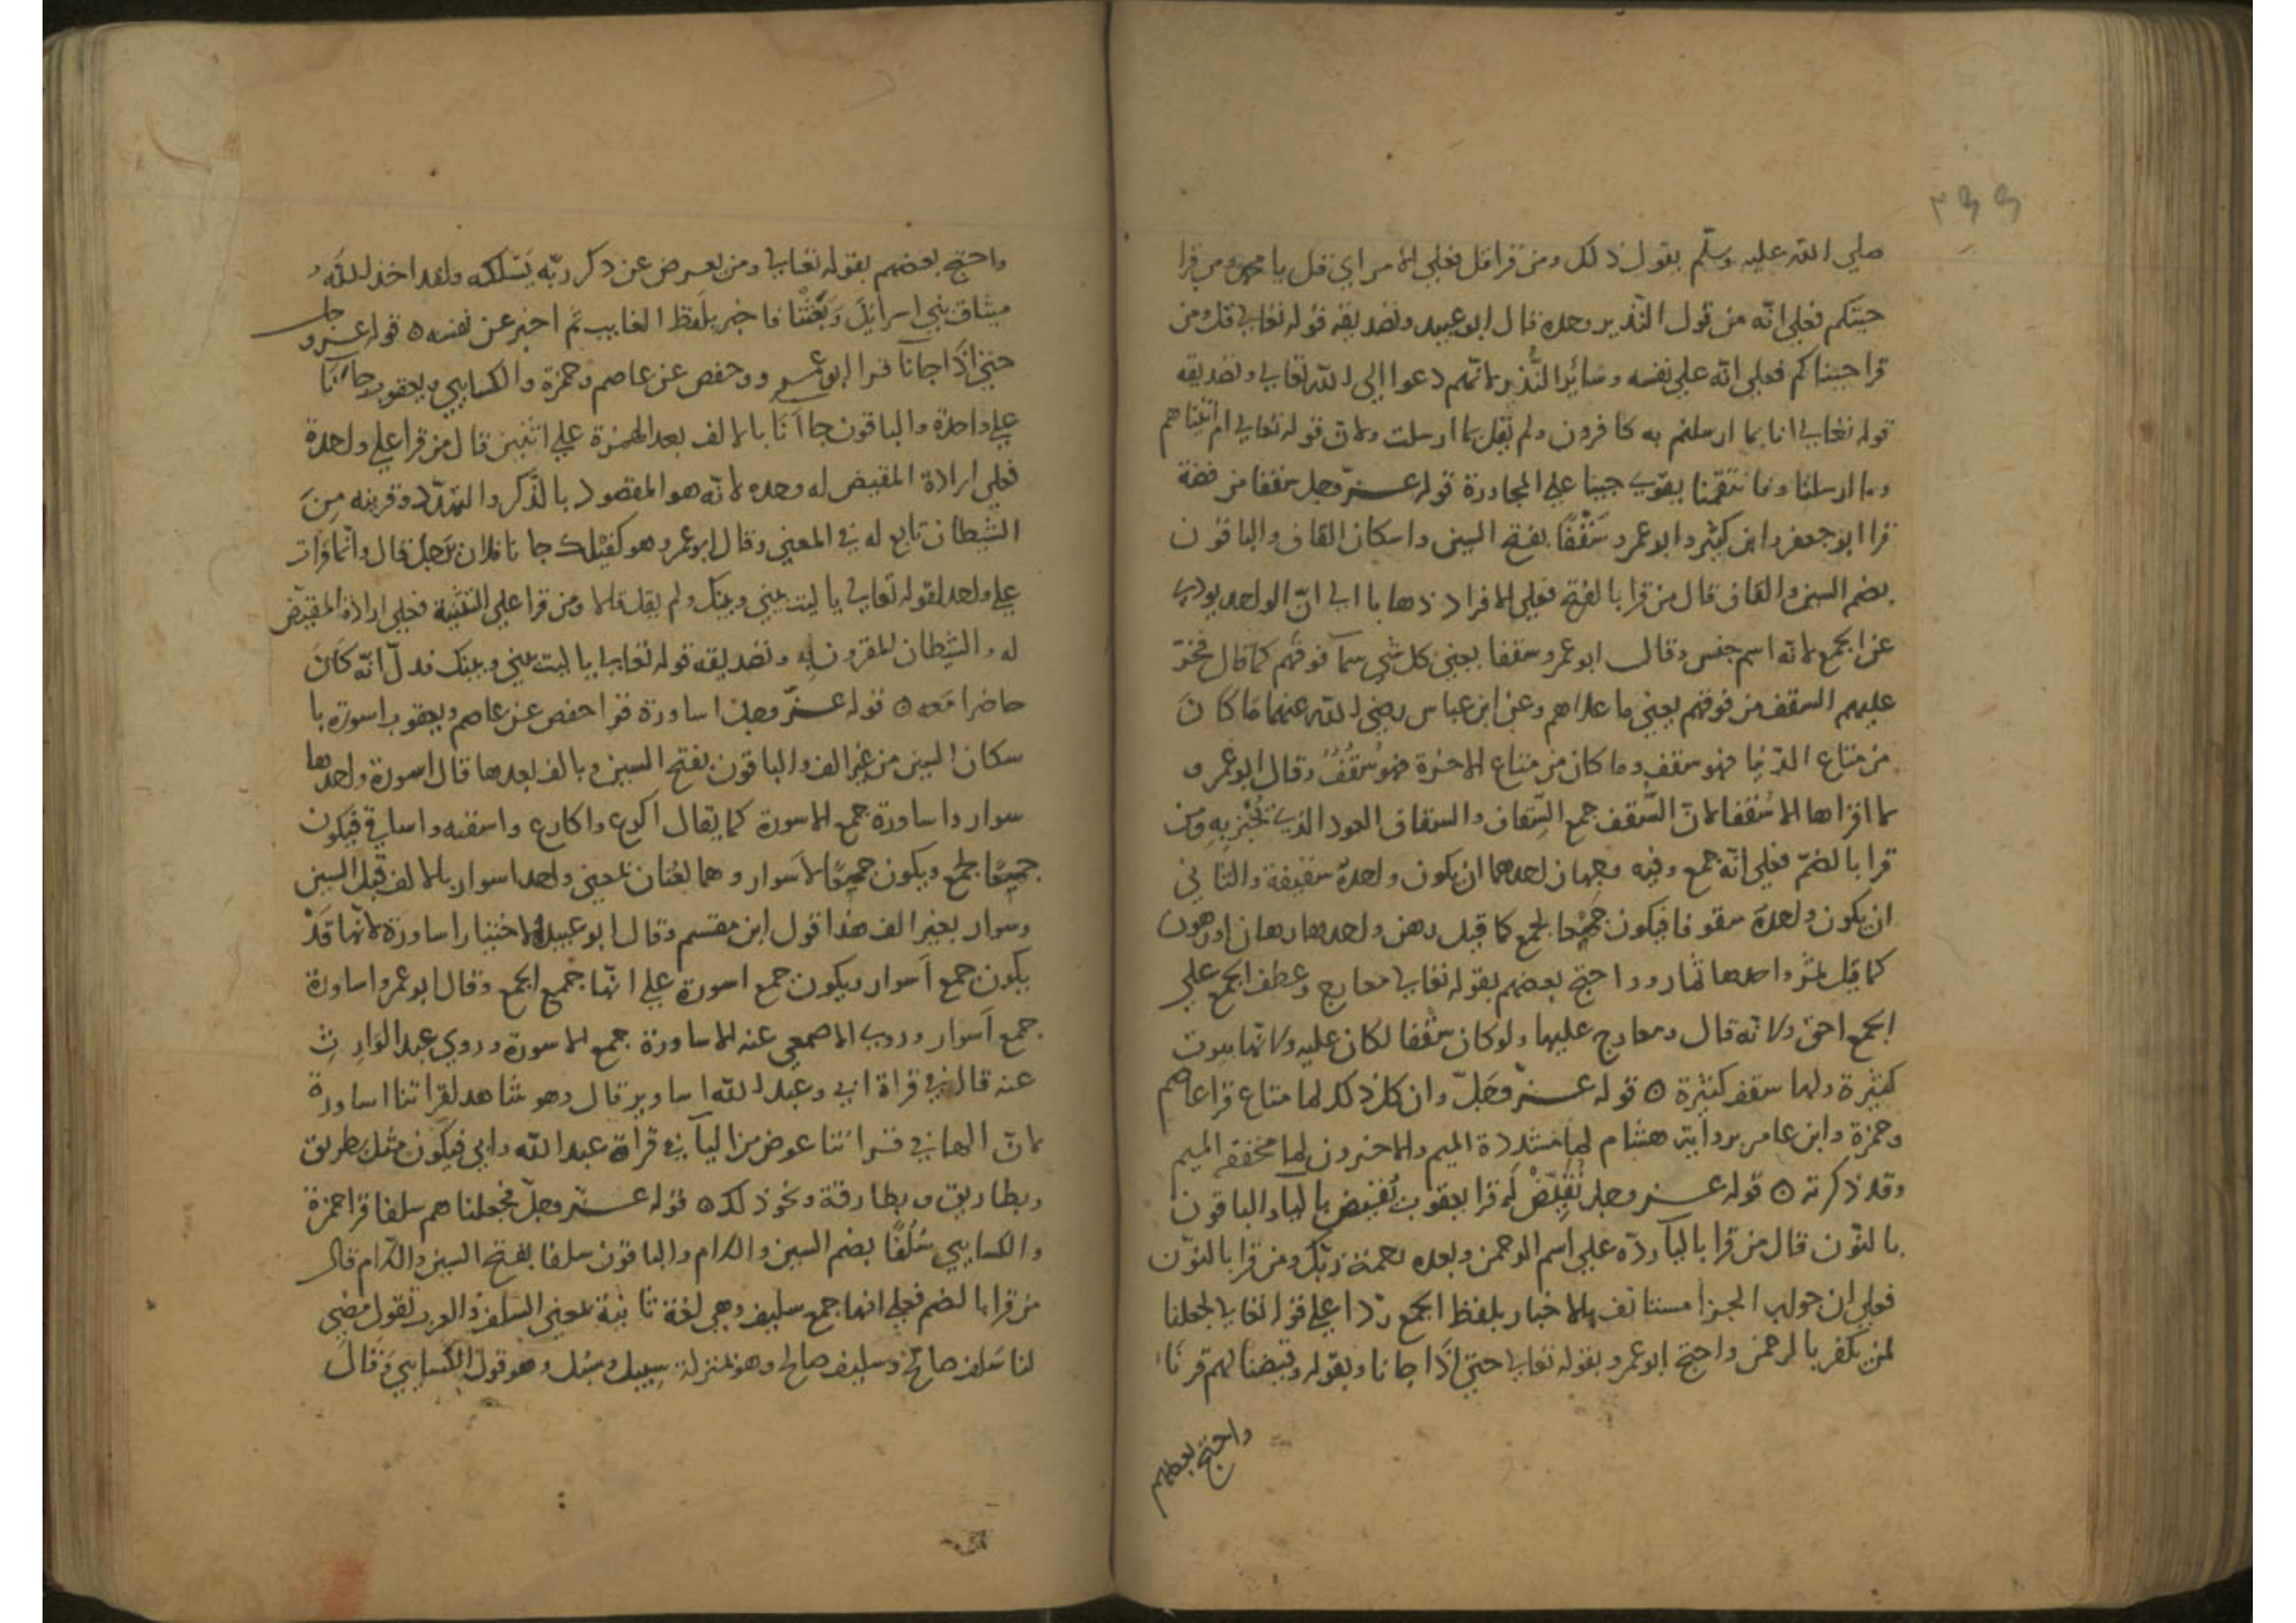 صلي الله عليه وسلم بقول ذلك ومن قرا قل فعلي الامر اي قل يا محمد ومن قرا
جيتكم فعلي انه من قول النذير وحده قال ابو عبيد وتصديقه قوله تعالي قل ومن
قرا جيناكم فعلي انه علي نفسه وسائر النُّذر لانهم دعوا الي الله تعالي وتصديقه
قوله تعالي انا بما ارسلتم به كافرون ولم يقل بما ارسلت ولان قوله تعالي ام اتيناهم
وما ارسلنا وفانتقمنا يقوي جينا علي المجاورة قوله عز وجل سقفا من فضة
قرا ابو جعفر وابن كثير وابو عمرو سَقْفًا بفتح السين واسكان القاف والباقون
بضم السين والقاف قال من قرا بالفتح فعلي الافراد ذهابا الي ان الواحد يودي
عن الجمع لانه اسم جنس وقال ابو عمرو سقفا يعني كل شي سما فوقهم كما قال فخرّ
عليهم السقف من فوقهم يعني ما علاهم وعن ابن عباس رضي الله عنهما ما كان
من متاع الدنيا فهو سقف وما كان من متاع الاخرة فهو سُقُفٌ وقال ابو عمرو
لا اقراها الا سَقفا لان السُّقف جمع السِّقاف والسقاف العود الذي يُجْبَر به ومن
قرا بالضمّ فعلي انه جمع وفيه وجهان احدهما ان يكون واحدة سقيفة والثاني
ان يكون واحدة سقوفا فيكون جَمْعا لجمع كما قيل رهن واحدها رهان او رهون
كما قيل ثمر واحدها ثمار واحتج بعضهم بقوله تعالي معارج وعطف الجمع علي
الجمع احق ولانه قال ومعارج عليها ولو كان سَقْفا لكان عليه ولانها بيوت
كثيرة ولها سقف كثيرة ه قوله عز وجلّ وان كل ذلك لما متاع قرا عاصم
وحمزة وابن عامر برواية هشام لما مشددة الميم والاخرون لما مخففة الميم
وقد ذكرته ه قوله عز وجل نُقَيِّضْ لَه قرا يعقوب يُقيض باليا والباقون
بالنون قال من قرا باليا ردّه علي اسم الرحمن وبعده رحمة ربّك ومن قرا بالنون
فعلي ان جواب الجزا مستانف بالاخبار بلفظ الجمع ردّا علي قوله تعالي لجعلنا
لمن يكفر بالرحمن واحتج ابو عمرو بقوله تعالي حتي اذا جانا وبقوله وقيضنا لهم قرنا
واحتج بعضهم
واحتج بعضهم بقوله تعالي ومن يعرض عن ذكر ربّه يَسْلكه ولقد اخذ الله
ميثاق بني اسرائيل وَبَعَثْنَا فاخبر بلفظ الغايب ثم اخبر عن نفسه ه قوله عز وجل
حتي اذا جانا قرا ابو عمرو وحفص عن عاصم وحمزة والكسايي ويعقوب جانا
علي واحدة والباقون جاانا بالالف بعد الهمزة علي اثنين قال من قرا علي واحدة
فعلي ارادة المقيض له وحده لانه هو المقصود بالذكر والتهدّد وقرينه مِنَ
الشيطان تابع له في المعني وقال ابو عمرو هو كقيلك جانا فلان بَرجل قال وانما قرات
علي واحد لقوله تعالي يا ليت بيني وبينك ولم يقل قالا ومن قرا علي التثنية فعلي ارادة المقيّض
له والشيطان المقرون به وتصديقه قوله تعالي يا ليت بيني وبينك فدلّ انه كان
حاضرا معه ه قوله عزّ وجل اساورة قرا حفص عن عاصم ويعقوب اسورة با
سكان السين من غير الف والباقون بفتح السين وبالف بعدها قال اسورة واحدها
سوار واساورة جمع الاسورة كما يقال اكرع واكارع واسقيه واساقي فيكون
جَمْعًا لجمع ويكون جَمْعًا لاسوار وهما لغتان بمعني واحد اسوار بالالف قبل السين
وسوار بغير الف هذا قول ابن مقسم وقال ابو عبيد الاختيار اساورة لانها قَدْ
يكون جمع اَسوار ويكون جمع اسورة علي انها جمع الجمع وقال ابو عمرو اساورة
جمع اَسوار وروي الاصمعي عنه الاساورة جمع الاسورة وروي عبد الوارث
عنه قال في قراة ابي وعبد الله اساوير قال وهو شاهد لقراتنا اساورة
لان الها في قراتنا عوض من اليا في قراة عبد الله وابي فيكون مثل بطريق
وبطاريق وبطارقة ونحو ذلك ه قوله عز وجلّ فجعلناهم سلفا قرا حمزة
والكسايي سُلُفًا بضم السين واللام والباقون سلفا بفتح السين واللام قال
من قرا بالضم فعلي انها جمع سليف وهي لغة ثابتة بمعني السلف والعرب تقول مضي
لنا سَلف صالح وسليف صالح وهو بمنزلة سبيل وسُبل وهو قول الكسايي وَقَالَ